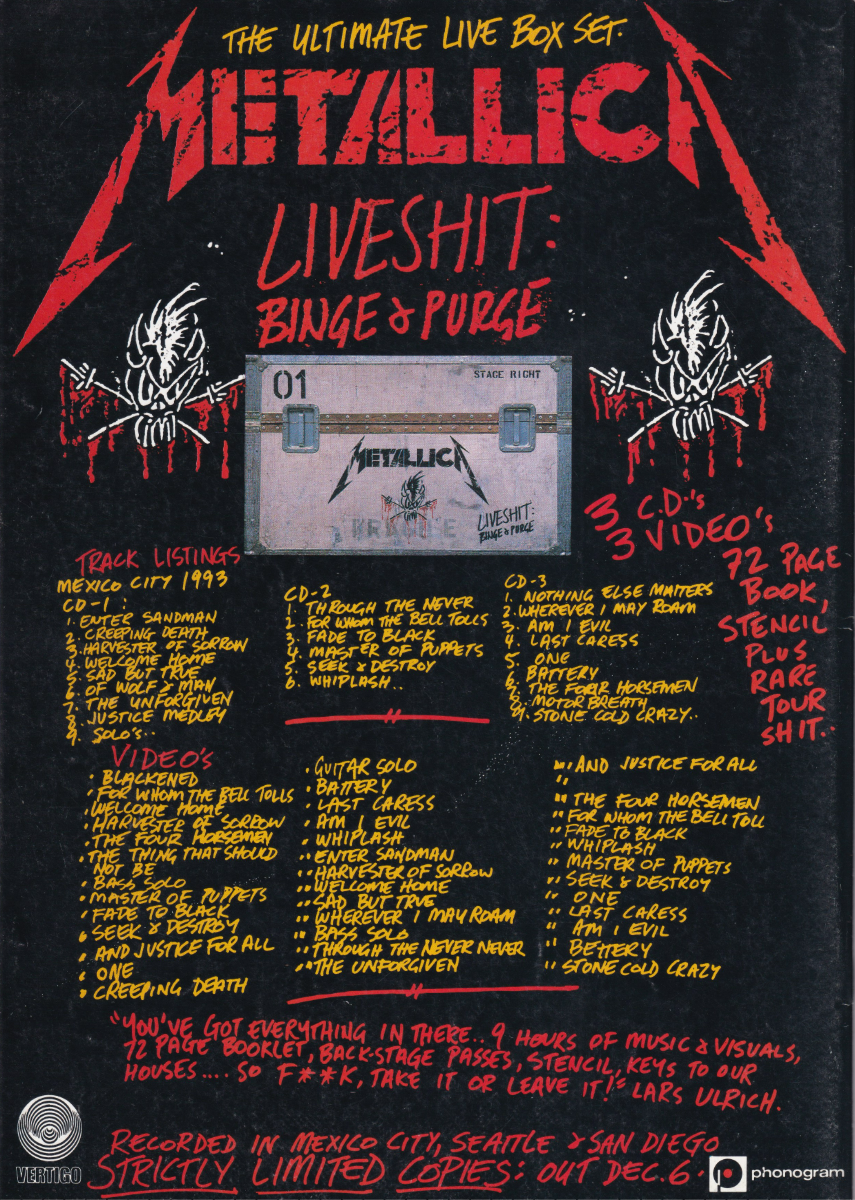 THE ULTIMATE LIVE BOX SET.
METALLICA
LIVESHIT:
BINGE & PURGE
01
STAGE RIGHT
METALLICA
LIVESHIT:
BINGE & PURGE
3 C.D.'s
3 VIDEO's
72 PAGE
BOOK,
STENCIL
PLUS
RARE
TOUR
SHIT..
TRACK LISTINGS
MEXICO CITY 1993
CD-1:
1. ENTER SANDMAN
2. CREEPING DEATH
3. HARVESTER OF SORROW
4. WELCOME HOME
5. SAD BUT TRUE
6. OF WOLF & MAN
7. THE UNFORGIVEN
8. JUSTICE MEDLEY
9. SOLO's..
CD-2
1. THROUGH THE NEVER
2. FOR WHOM THE BELL TOLLS
3. FADE TO BLACK
4. MASTER OF PUPPETS
5. SEEK & DESTROY
6. WHIPLASH..
CD-3
1. NOTHING ELSE MATTERS
2. WHEREVER I MAY ROAM
3. AM I EVIL
4. LAST CARESS
5. ONE
6. BATTERY
THE FOUR HORSEMEN
8. MOTORBREATH
9. STONE COLD CRAZY..
VIDEO's
• BLACKENED
• FOR WHOM THE BELL TOLLS
• WELCOME HOME
• HARVESTER OF SORROW
• THE FOUR HORSEMEN
• THE THING THAT SHOULD
NOT BE
• BASS SOLO
• MASTER OF PUPPETS
• FADE TO BLACK
• SEEK & DESTROY
• AND JUSTICE FOR ALL
• ONE
• CREEPING DEATH
• GUITAR SOLO
• BATTERY
• LAST CARESS
• AM I EVIL
• WHIPLASH
•• ENTER SANDMAN
•• HARVESTER OF SORROW
•• WELCOME HOME
•• SAD BUT TRUE
•• WHEREVER I MAY ROAM
•• BASS SOLO
•• THROUGH THE NEVER NEVER
•• THE UNFORGIVEN
... AND JUSTICE FOR ALL
"
" THE FOUR HORSEMEN
" FOR WHOM THE BELL TOLL
" FADE TO BLACK
" WHIPLASH
" MASTER OF PUPPETS
" SEEK & DESTROY
" ONE
" LAST CARESS
" AM I EVIL
" BETTERY
" STONE COLD CRAZY
"YOU'VE GOT EVERYTHING IN THERE.. 9 HOURS OF MUSIC & VISUALS,
72 PAGE BOOKLET, BACK-STAGE PASSES, STENCIL, KEYS TO OUR
HOUSES.... SO F**K, TAKE IT OR LEAVE IT!" LARS ULRICH.
RECORDED IN MEXICO CITY, SEATTLE & SAN DIEGO
STRICTLY LIMITED COPIES: OUT DEC. 6.
VERTIGO
phonogram